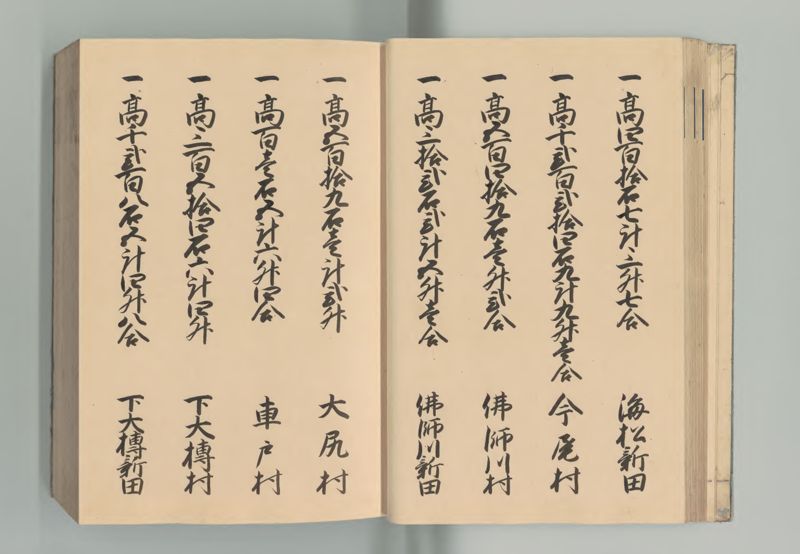 一 高四百拾石七斗三升七合 海松新田
一 高千弐百弐拾四石九斗九升壱合 今尾村
一 高五百四拾九石壱升弐合 佛師川村
一 高三拾弐石弐斗五升壱合 佛師川新田
一 高五百拾九石壱斗弐升 大尻村
一 高百壱石五斗六升四合 車戸村
一 高三百五拾四石六斗四升 下大榑村
一 高千弐百八石五斗四升八合 下大榑新田